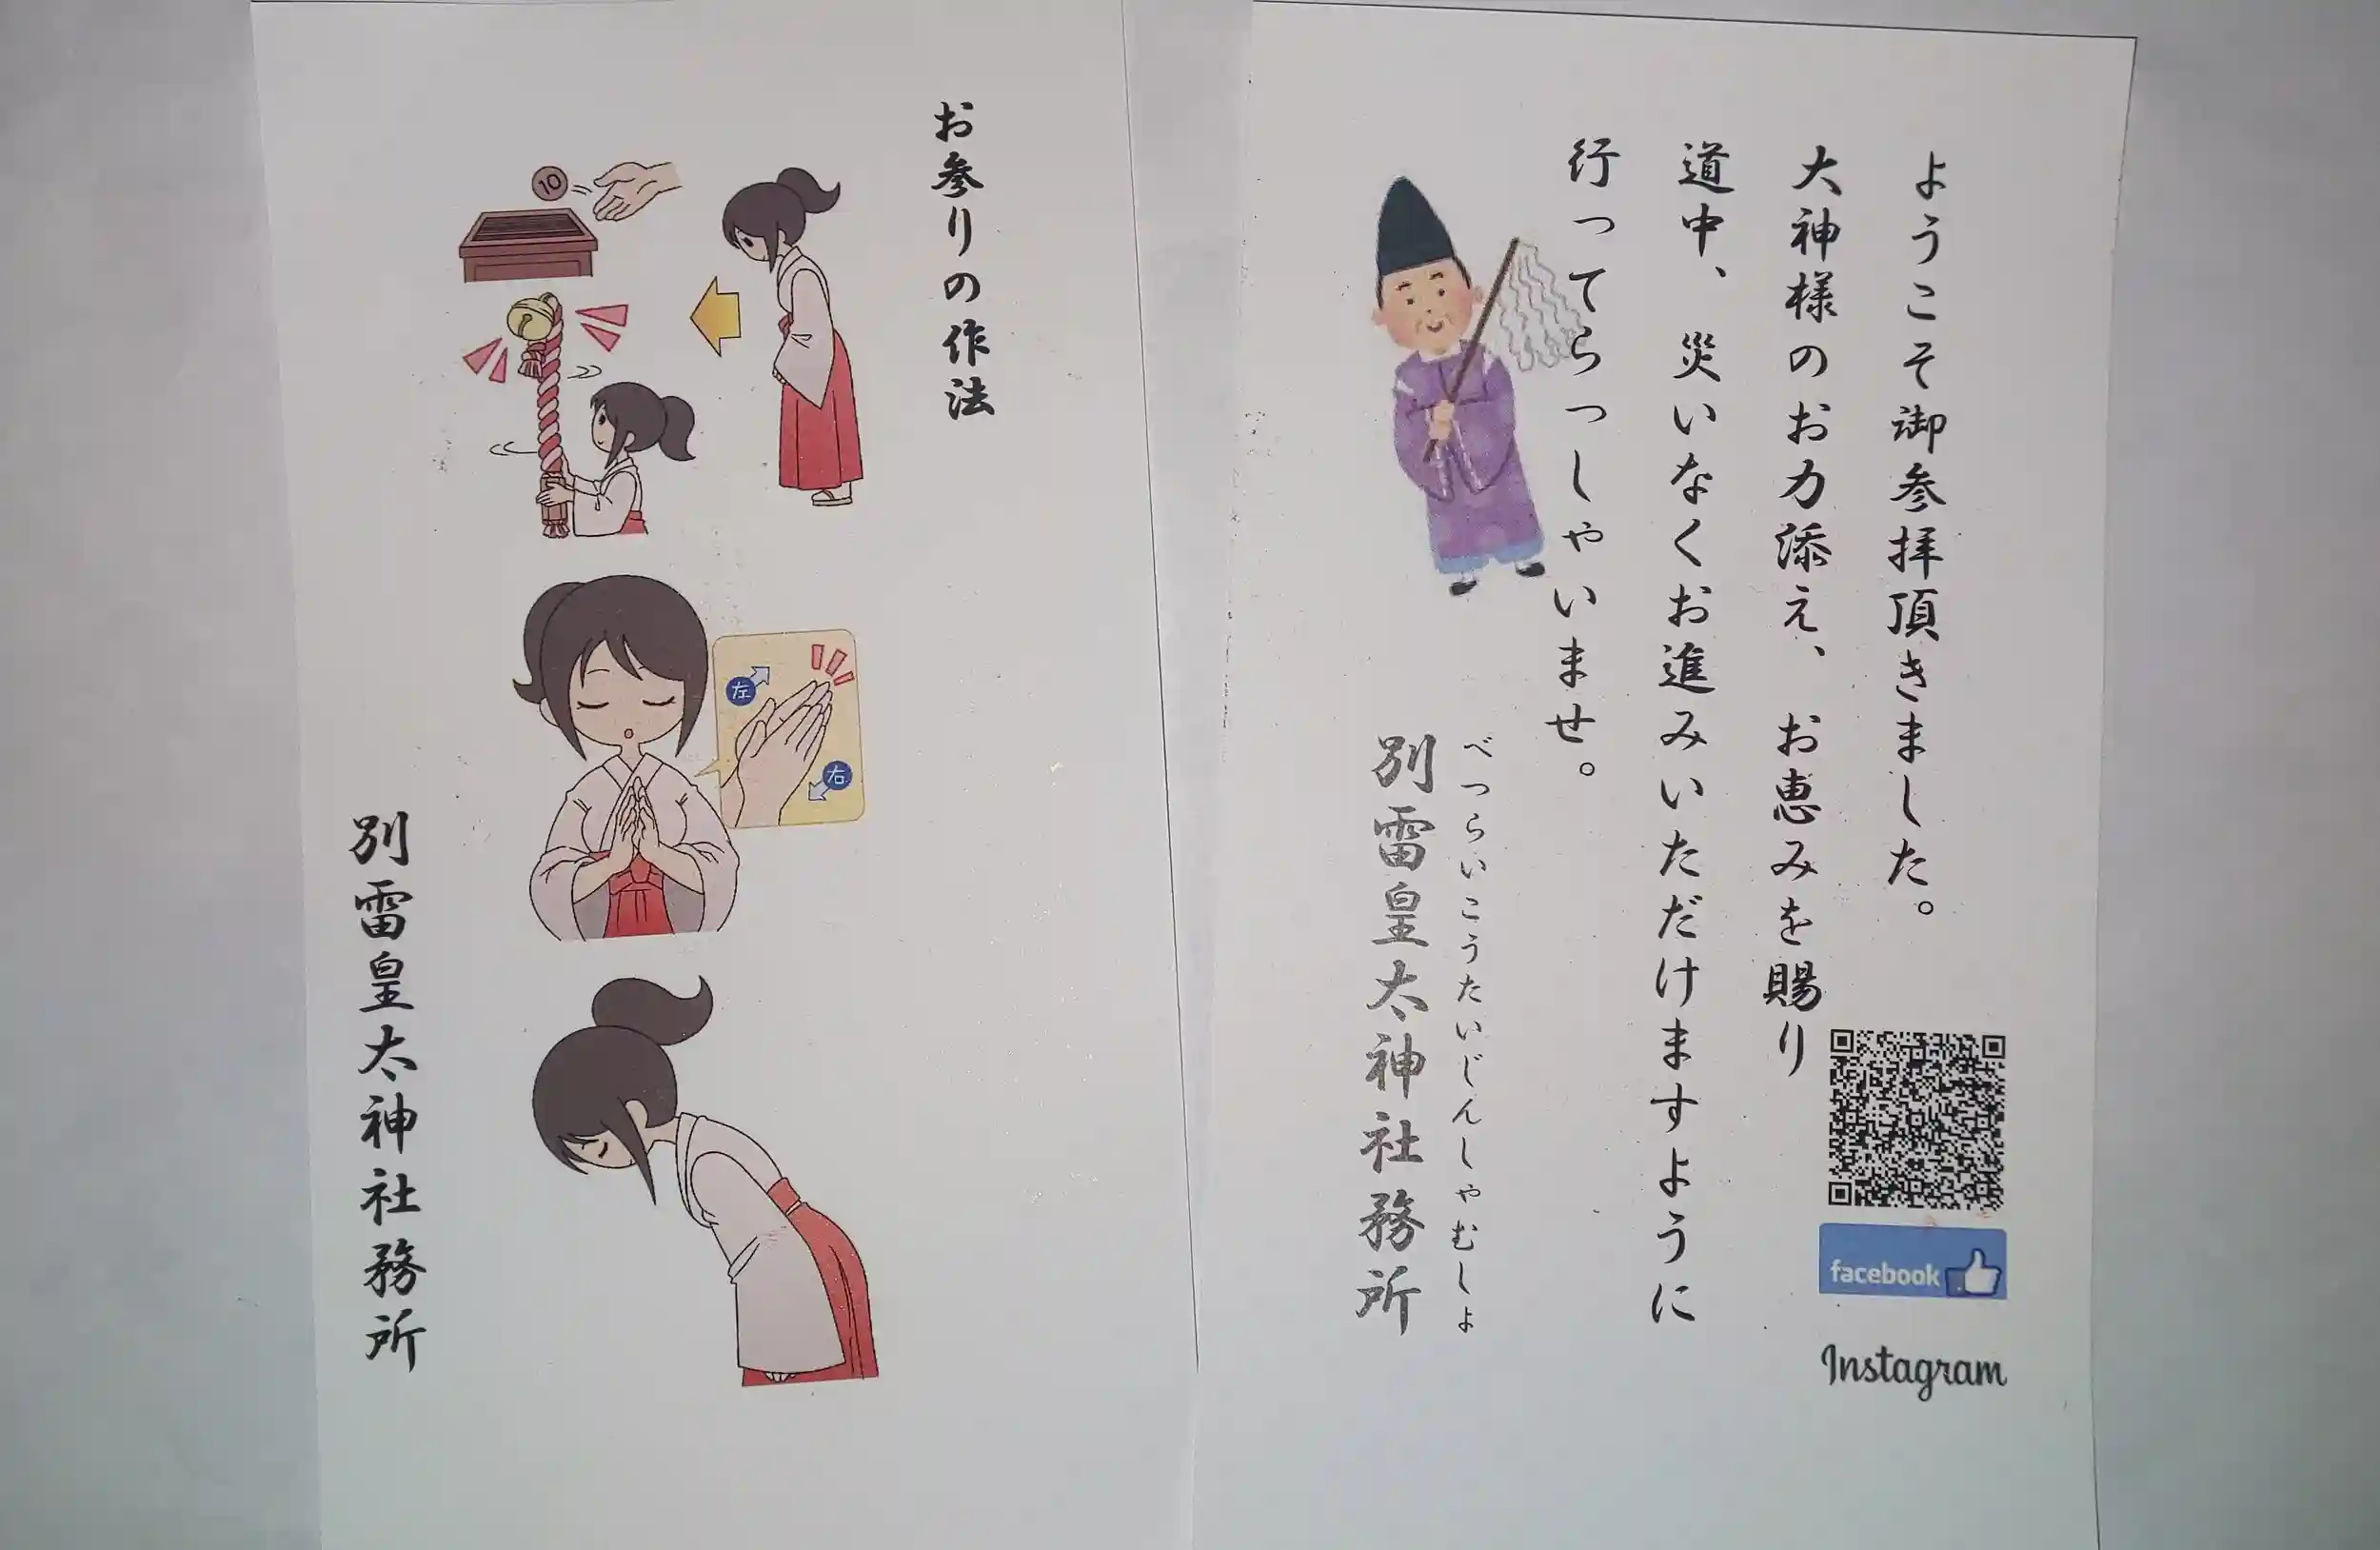 ようこそ御参拝頂きました。
大神様のお力添え、お恵みを賜り
道中、災いなくお進みいただけますように
行ってらっしゃいませ。
べつらいこうたいじんしゃむしょ
別雷皇太神社務所
facebook
Instagram
お参りの作法
10
左
右
別雷皇太神社務所